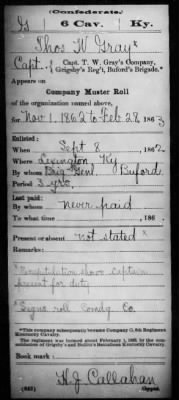 (Confederate.)
G 6 Cav. Ky.
Thos W Gray*
Capt. { Capt. T. W. Gray's Company, Grigsby's Reg't, Buford's Brigade.*
Appears on
Company Muster Roll
of the organization named above,
for Nov 1, 1862 to Feb 28, 1863
Enlisted:
When Sept 8, 1862
Where Lexington, Ky
By whom Brig Genl. Buford
Period 3 yrs.
Last paid:
By whom never paid
To what time , 186 .
Present or absent not stated*
Remarks:
*Recapitulation shows Captain
present for duty
*Signs roll Comdg Co.
*This company subsequently became Company G, 6th Regiment
Kentucky Cavalry.
The regiment was formed about February 1, 1863, by the
of Grigsby's and Kentucky Cavalry.
Book mark:
H.J. Callahan
(642) Copyist.